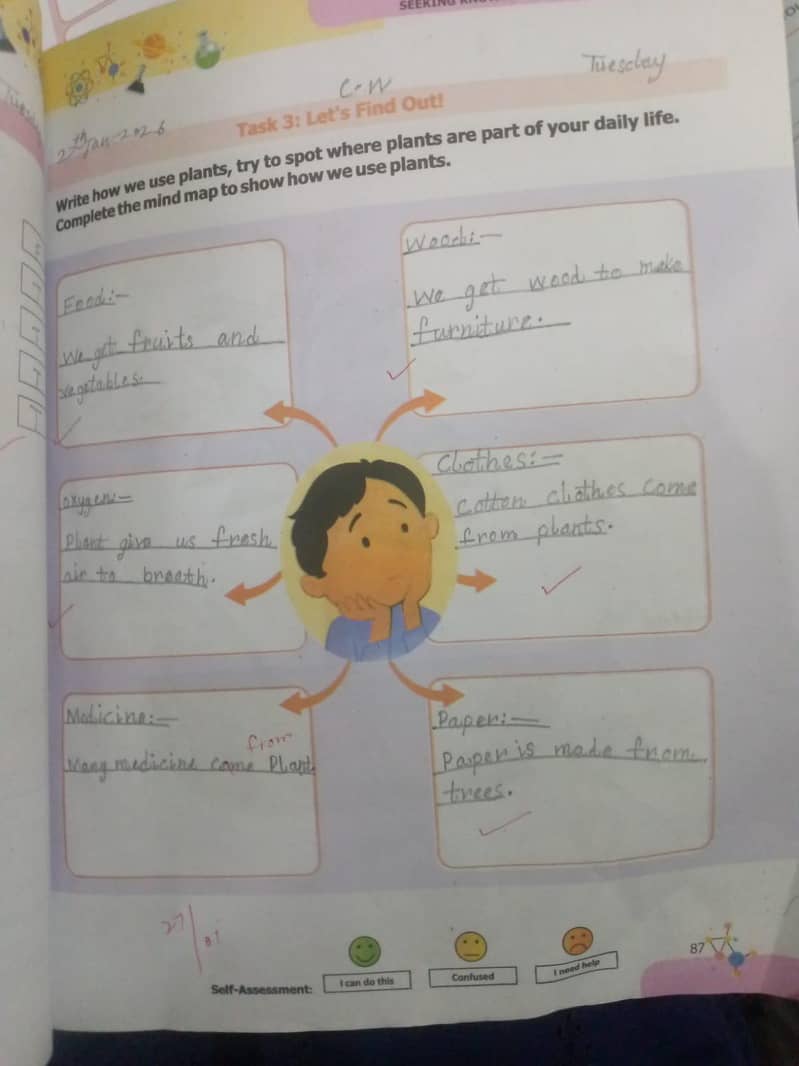 C.W
Tuesday
27th Jan 2026
Task 3: Let's Find Out!
Write how we use plants, try to spot where plants are part of your daily life.
Complete the mind map to show how we use plants.
Food:-
We get fruits and
vegetables.
Wood:-
We get wood to make
furniture.
Oxygen:-
Plant give us fresh
air to breath.
Clothes:-
Cotten clothes come
from plants.
Medicine:-
from
Many medicine come Plant.
Paper:-
Paper is made from
trees.
27/01
Self-Assessment:
I can do this
Confused
I need help
87